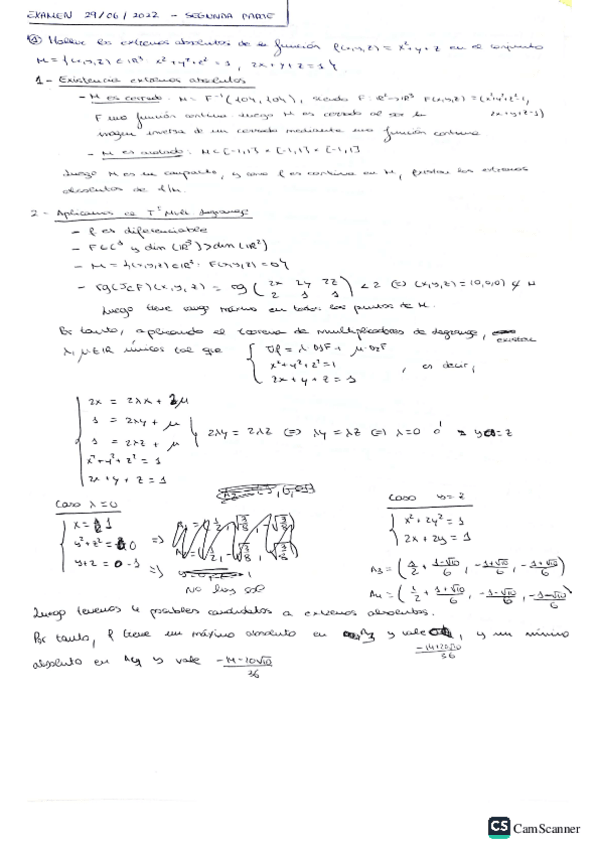 EXAMEN 29/06/2022 - SEGUNDA PARTE
① Hallar los extremos absolutos de la función f(x,y,z) = x²+y+z en el conjunto
M = {(x,y,z) ∈ ℝ³: x²+y²+z² = 1, 2x+y+z = 1}.
1 - Existencia extremos absolutos
- M es cerrado: M = F⁻¹({0},{0}), siendo F: ℝ³→ℝ² F(x,y,z) = (x²+y²+z²-1,
2x+y+z-1)
F una función continua. Luego M es cerrado al ser la
imagen inversa de un cerrado mediante una función continua
- M es acotado: M ⊂ [-1,1] × [-1,1] × [-1,1]
Luego M es un compacto, y como f es continua en M, existen los extremos
absolutos de f/M.
2 - Aplicamos el Tª Mult. Lagrange:
- f es diferenciable
- F ∈ C¹ y dim(ℝ³) > dim(ℝ²)
- M = {(x,y,z) ∈ ℝ³: F(x,y,z) = 0}
- rg(JcF)(x,y,z) = rg (2x 2y 2z
2 1 1) < 2 ⇔ (x,y,z) = (0,0,0) ∉ M
Luego tiene rango máximo en todos los puntos de M.
Por tanto, aplicando el teorema de multiplicadores de Lagrange, existen
λ, μ ∈ ℝ únicos tal que { ∇f = λ · D₁F + μ · D₂F
x²+y²+z² = 1
2x+y+z = 1 , es decir,
2x = 2λx + 2μ
1 = 2λy + μ
1 = 2λz + μ } 2λy = 2λz ⇔ λy = λz ⇔ λ=0 ó y = z
x²+y²+z² = 1
2x+y+z = 1
Caso λ=0
x = 1
y²+z² = 0 ⇒
y+z = -1 ⇒
No hay sol
Caso y = z
x²+2y² = 1
2x+2y = 1
A₃ = (1/2 + 1-√10/6, -1+√10/6, -1+√10/6)
A₄ = (1/2 + 1+√10/6, -1-√10/6, -1-√10/6)
Luego tenemos 4 posibles candidatos a extremos absolutos.
Por tanto, f tiene un máximo absoluto en A₃ y vale -14+20√10/36, y un mínimo
absoluto en A₄ y vale -14-20√10/36
CS CamScanner